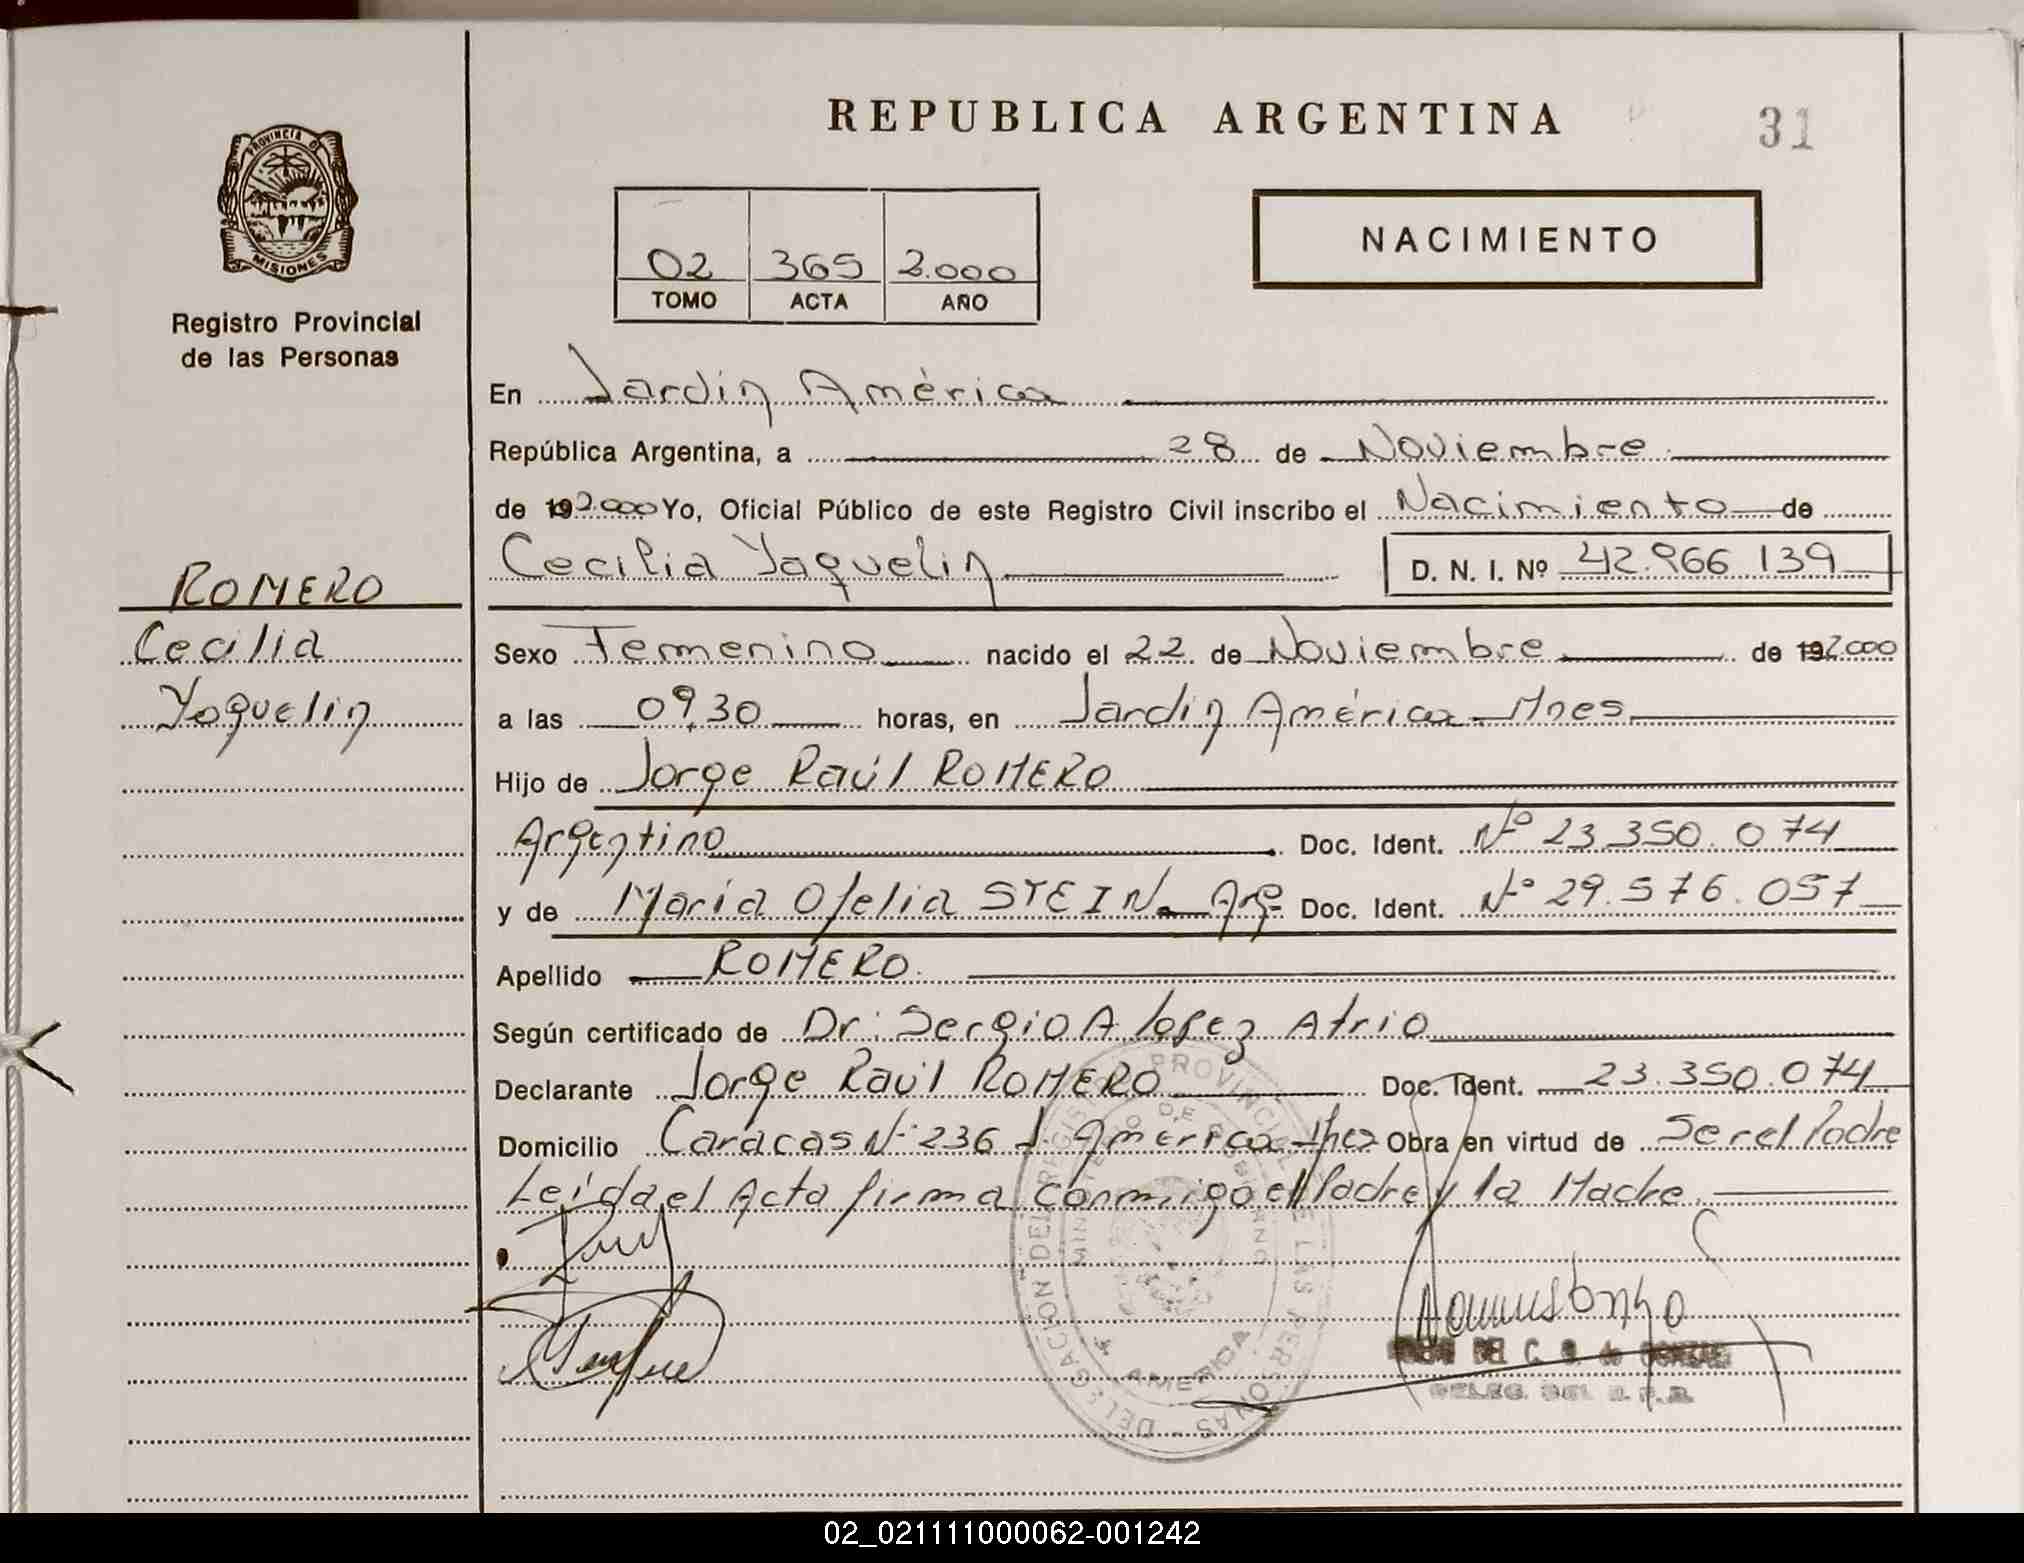 REPUBLICA ARGENTINA
31
PROVINCIA DE
MISIONES
Registro Provincial
de las Personas
02 365 2.000
TOMO ACTA AÑO
NACIMIENTO
En Jardín América
República Argentina, a 28 de Noviembre
de 192.000 Yo, Oficial Público de este Registro Civil inscribo el Nacimiento de
Cecilia Yaquelin D. N. I. Nº 42.966 139
ROMERO
Cecilia
Yaquelin
Sexo Femenino nacido el 22 de Noviembre de 192.000
a las 09,30 horas, en Jardín América - Mnes
Hijo de Jorge Raúl ROMERO
Argentino Doc. Ident. Nº 23.350.074
y de María Ofelia STEIN Arg. Doc. Ident. Nº 29.576.057
Apellido ROMERO
Según certificado de Dr: Sergio A López Atrio
Declarante Jorge Raúl ROMERO Doc. Ident. 23.350.074
Domicilio Caracas Nº 236 J. América Mnes Obra en virtud de Ser el Padre
Leída el Acta firma conmigo el Padre y la Madre
DELEGACION DEL REGISTRO PROVINCIAL DE LAS PERSONAS
MINISTERIO DE GOBIERNO
AMERICA
DEL C. G. de
DELEG. DEL R. P. P.
02_021111000062-001242